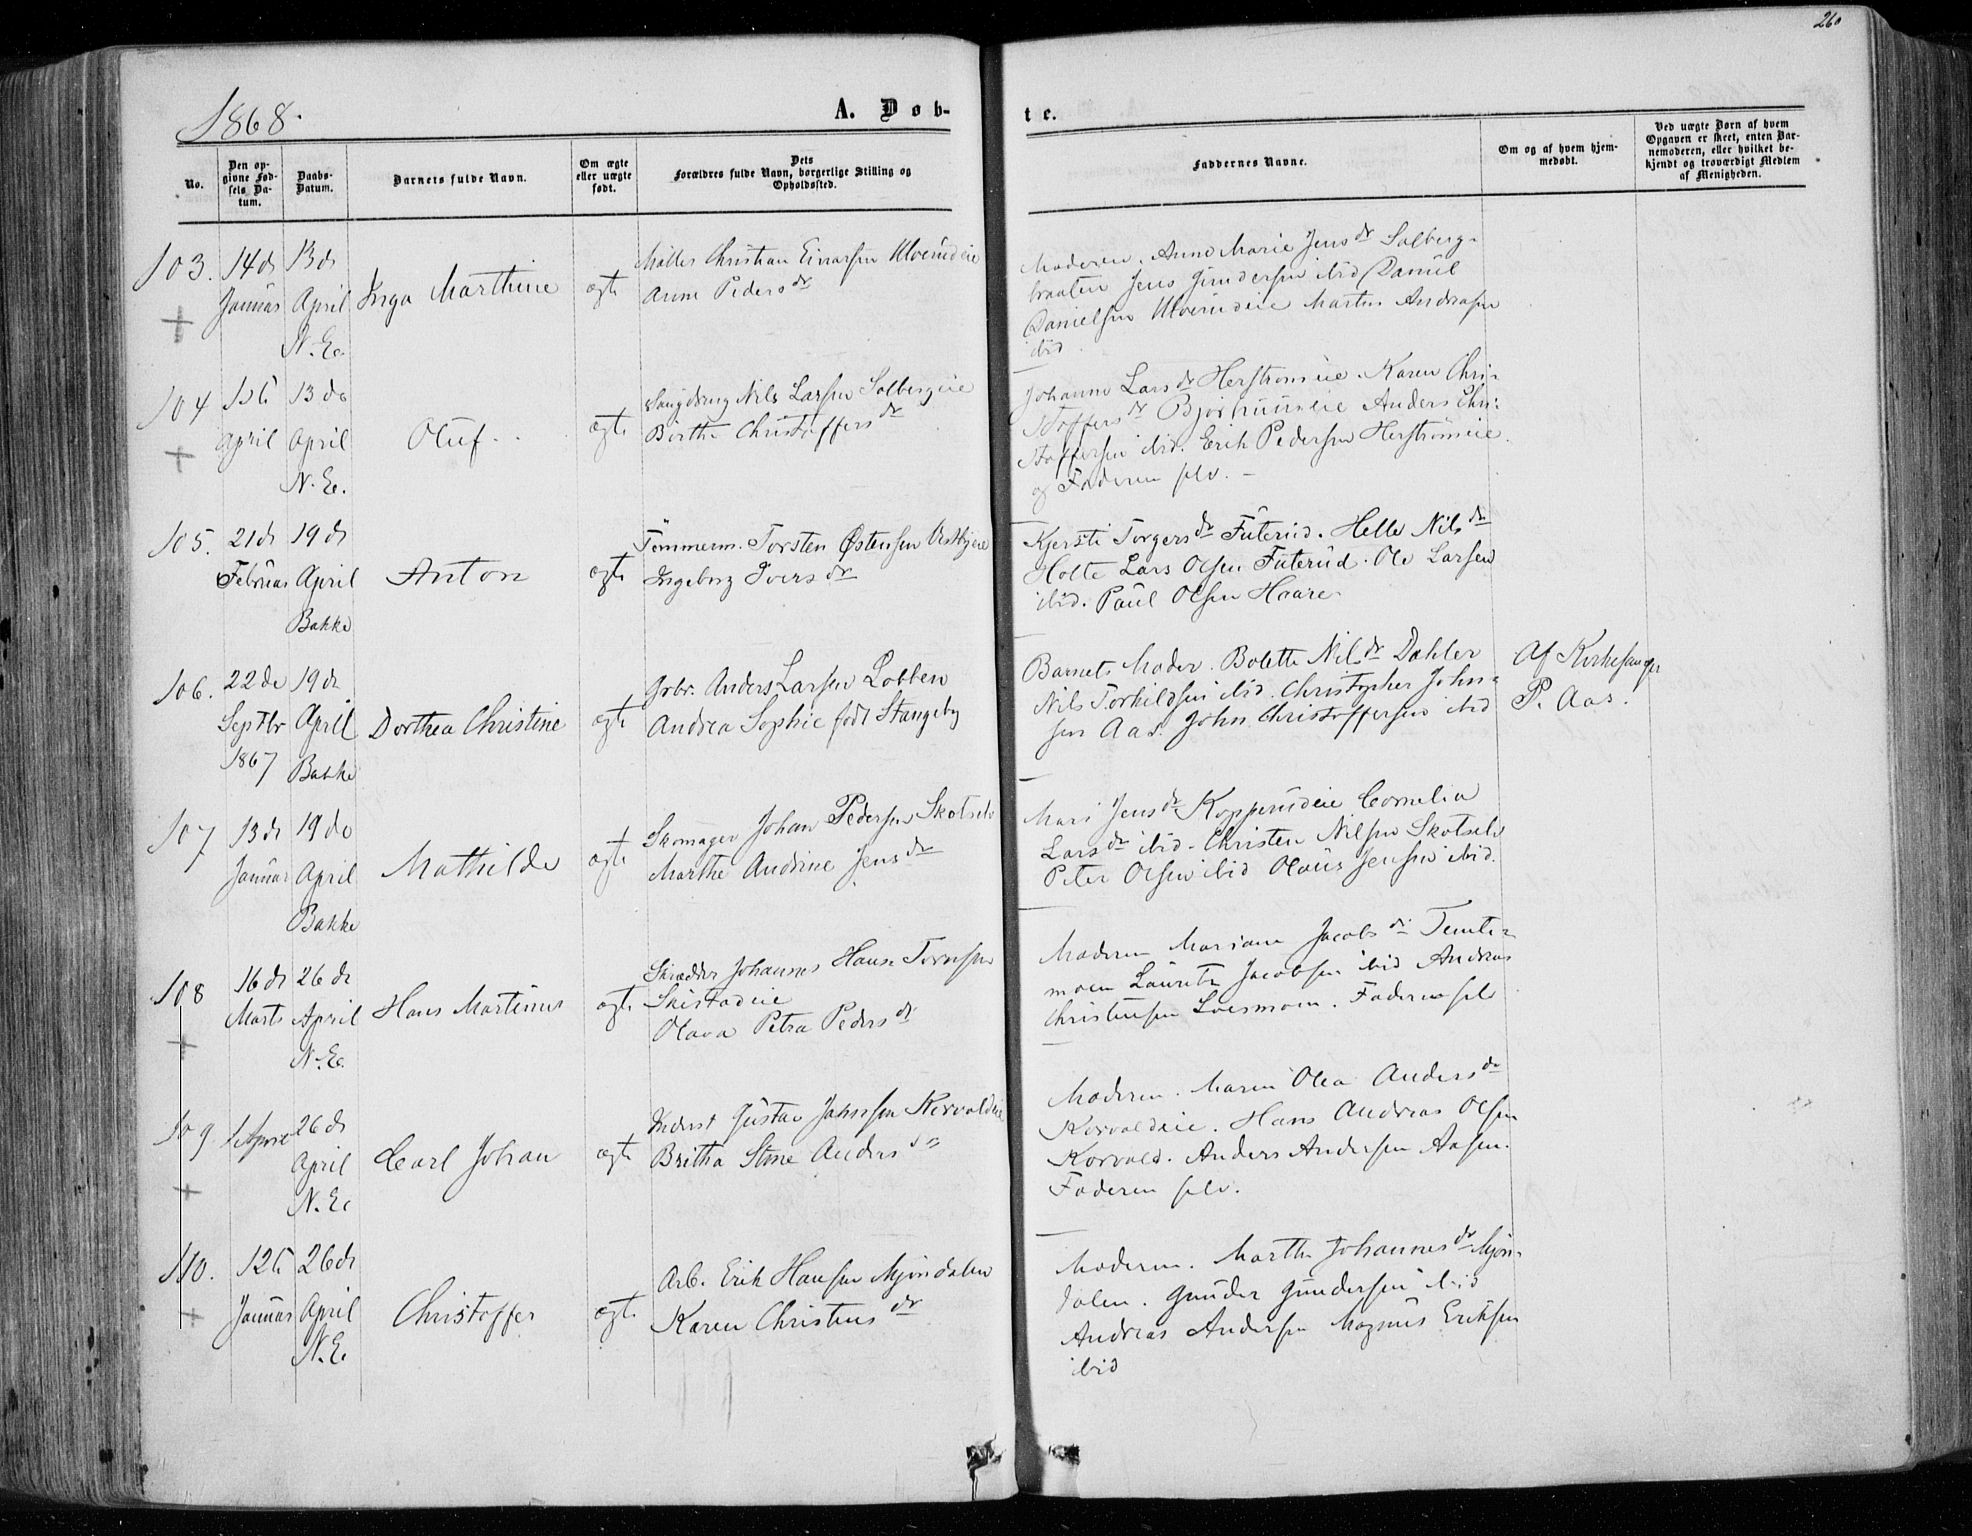 260
1868.
A. Døb-
te.
No.
Den op-
givne Fød-
sels Da-
tum.
Daabs-
Datum.
Barnets fulde Navn.
Om ægte
eller uægte
født.
Dets
Forældres fulde Navn, borgerlige Stilling og
Opholdssted.
Faddernes Navne.
Om og af hvem hjem-
medøbt.
Ved uægte Børn af hvem
Opgaven er skeet, enten Bar-
nemoderen, eller hvilket be-
kjendt og troværdigt Medlem
af Menigheden.
103.
14de
Januar
13de
April
N. E.
Inga Marthine
ægte
Møller Christian Einarsen Ulverudeie
Anne Pedersdr
Moderen. Anne Marie Jensdr Solberg-
braaten Jens Gundersen ibid Daniel
Danielsen Ulverudeie Martin Andreasen
ibid.
104
1ste
April
13de
April
N. E.
Oluf.
ægte
Saugdreng Nils Larsen Solbergeie
Birthe Christoffersdr
Johanne Larsdr Herstrømeie. Karen Chri-
stoffersdr Anders Chri-
stoffersen ibid. Erik Pedersen Herstrømeie.
og Faderen selv. –
105.
21de
Februar
19de
April
Bakke
Anton
ægte
Tømmerm. Torsten Østensen
Ingeborg Iversdr
Kjersti Torgersdr Futerud. Helle Nilsdr
Holte Lars Olsen Futerud. Ole Larsen
ibid. Paul Olsen Haare.
106.
22de
Septbr
1867
19de
April
Bakke
Dorthea Christine
ægte
Gbr. Anders Larsen Lobben
Andrea Sophie født Stangeby
Barnets Moder. Bolette Nilsdr Dahler
Nils Torkildsen ibid. Christopher John-
sen Aas. John Christoffersen ibid
Af Kirkesanger
P. Aas.
107
13de
Januar
19de
April
Bakke
Mathilde
ægte
Skomager Johan Pedersen Skotselv
Marthe Andrine Jensdr
Mari Jensdr Kopperudeie Cornelia
Larsdr ibid. Christen Nilsen Skotselv
Peter Olsen ibid Olaus Jensen ibid.
108
16de
Marts
26de
April
N. E.
Hans Martinus
ægte
Skrædder Johannes Hans
Skistadeie
Olava Petra Pedersdr
Moderen Mariane Jacobsdr Temte-
moen Lauritz Jacobsen ibid Andreas
Christensen Loesmoen. Faderen selv
109
1 April
26de
April
N. E.
Carl Johan
ægte
Inderst Gustav Korvaldeie
Britha Stine Andersdr
Moderen. Maren Olea Andersdr
Korvaldeie. Hans Andreas Olsen
Korvald. Anders Andersen Aasen.
Faderen selv.
110.
12te
Januar
26de
April
N. E.
Christoffer
ægte
Arb. Erik Hansen Mjøndalen
Karen Christensdr
Moderen. Marthe Johannesdr Mjøn-
dalen. Gunder Gundersen ibid
Andreas Andersen Magnus Eriksen
ibid